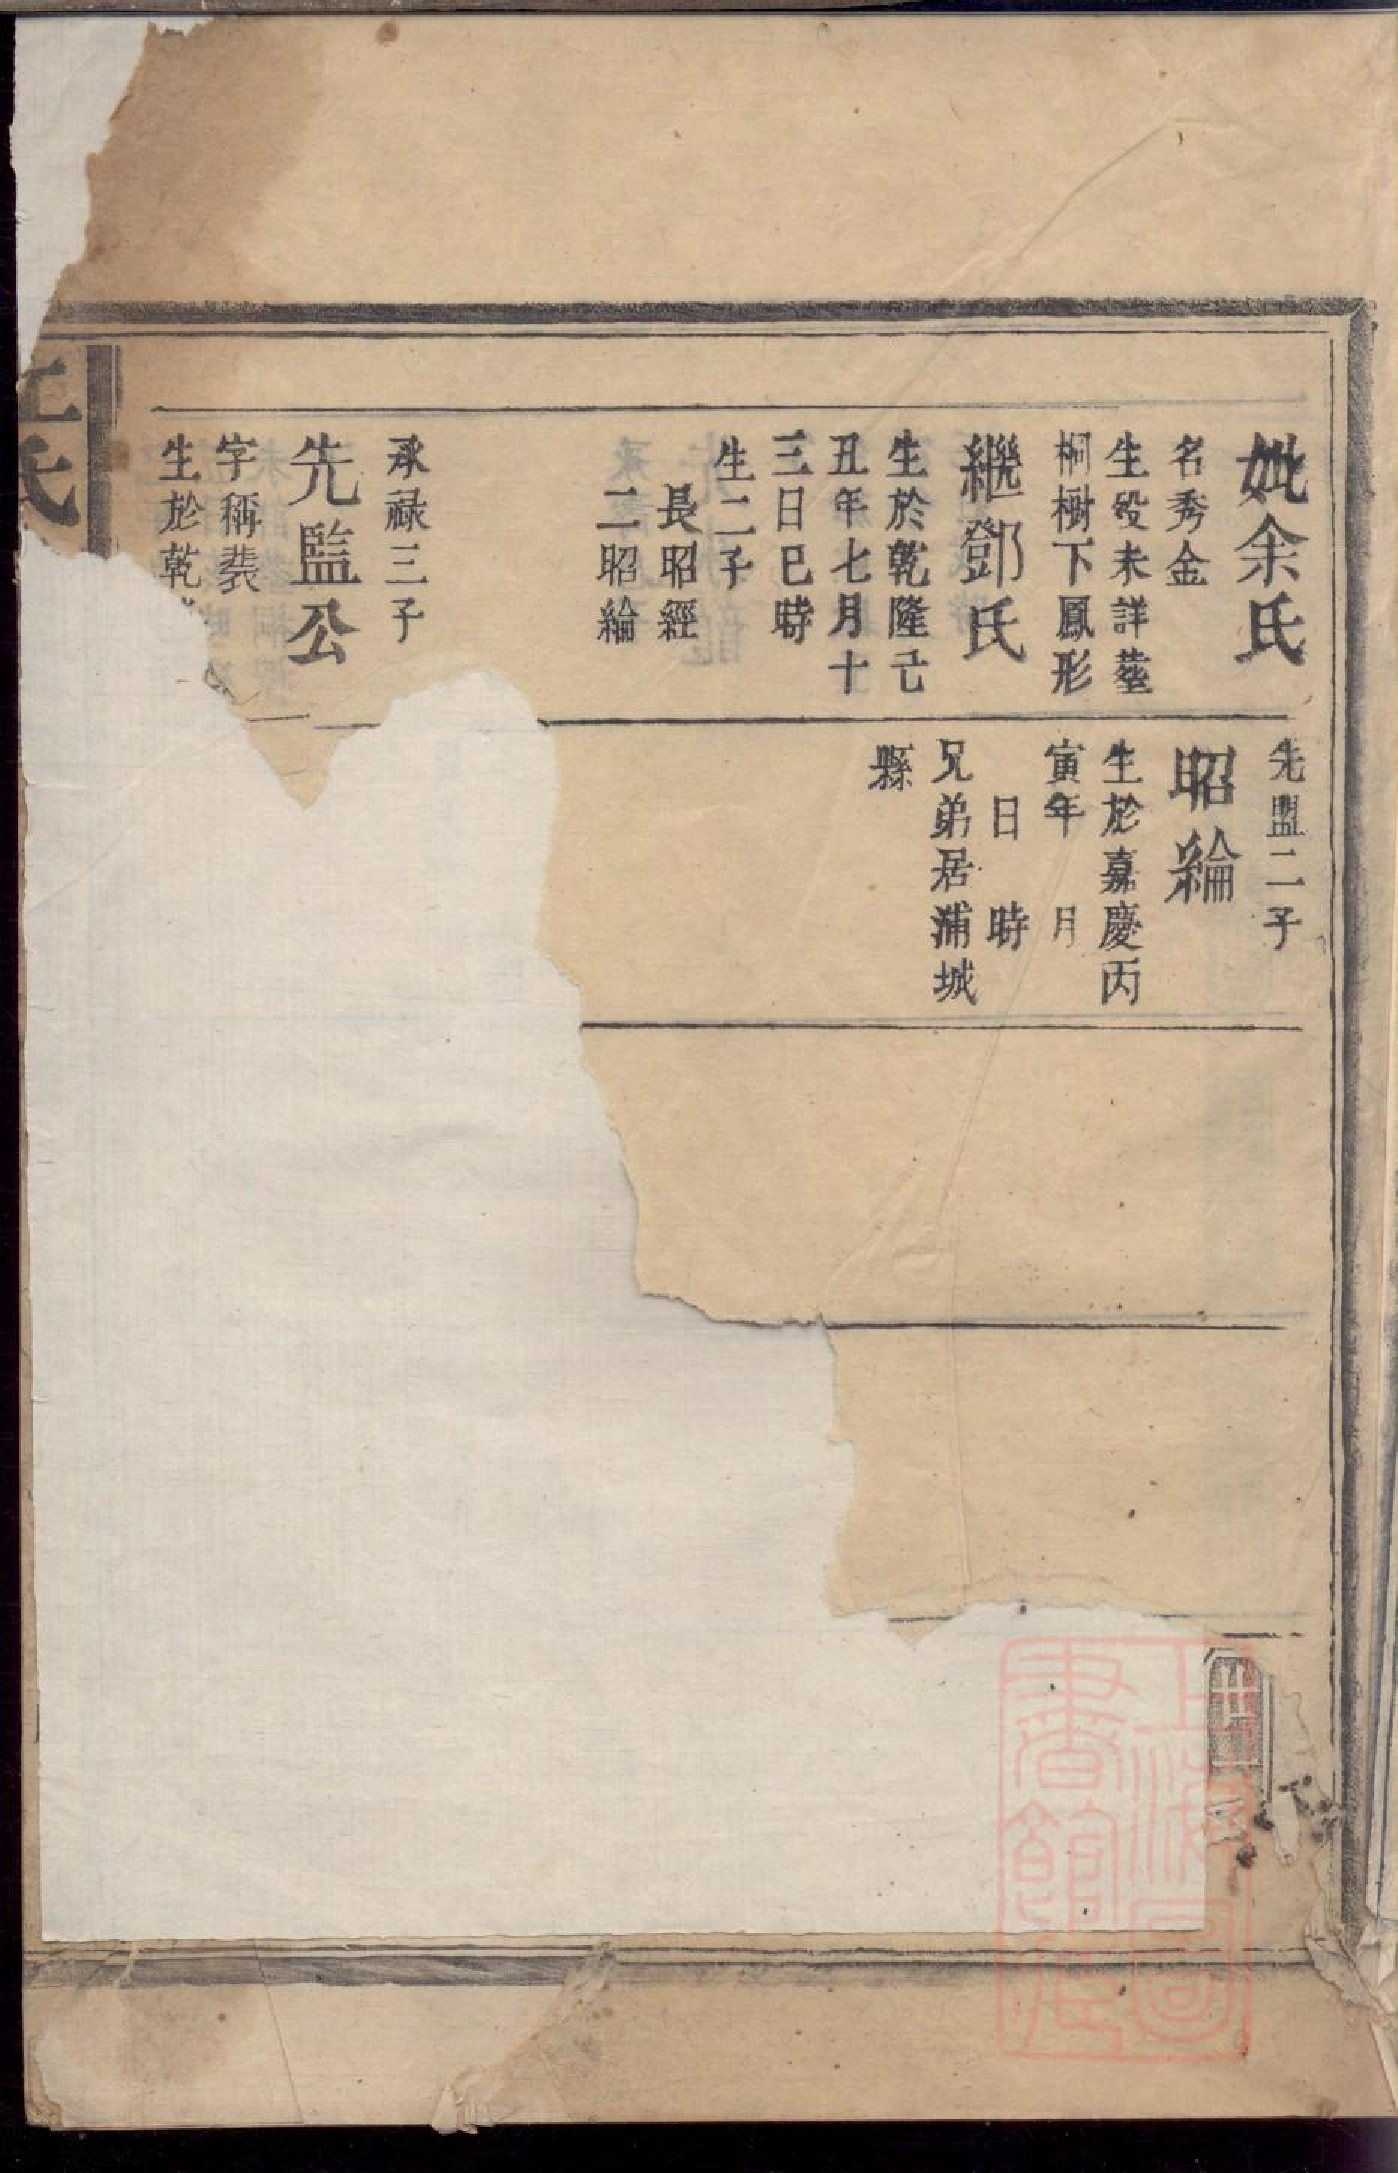 妣余氏
名秀金
生歿未詳塟
桐樹下鳳形
繼鄧氏
生於乾隆己
丑年七月十
三日巳時
生二子
長昭經
二昭綸
承祿三子
先監公
字稱裴
生於乾
先盟二子
昭綸
生於嘉慶丙
寅年 月
日 時
兄弟居浦城
縣
氏
上海圖
書館藏